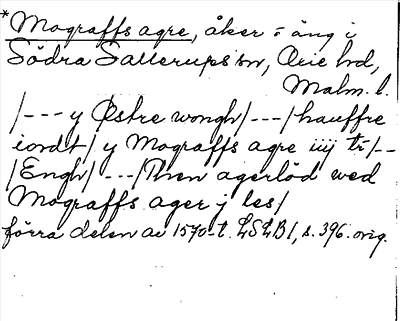 *Mograffs agre, åker o äng i
Södra Sallerups sn, Oxie hd,
Malm. l.
/--- y Østre wongh/---/hauffre
iordt/ y Mograffs agre iiij tr/--
/Engh/ ---/Then agerlöd wed
Mograffs ager j les/
förra delen av 1570-t. LSLB1, s. 396. orig.